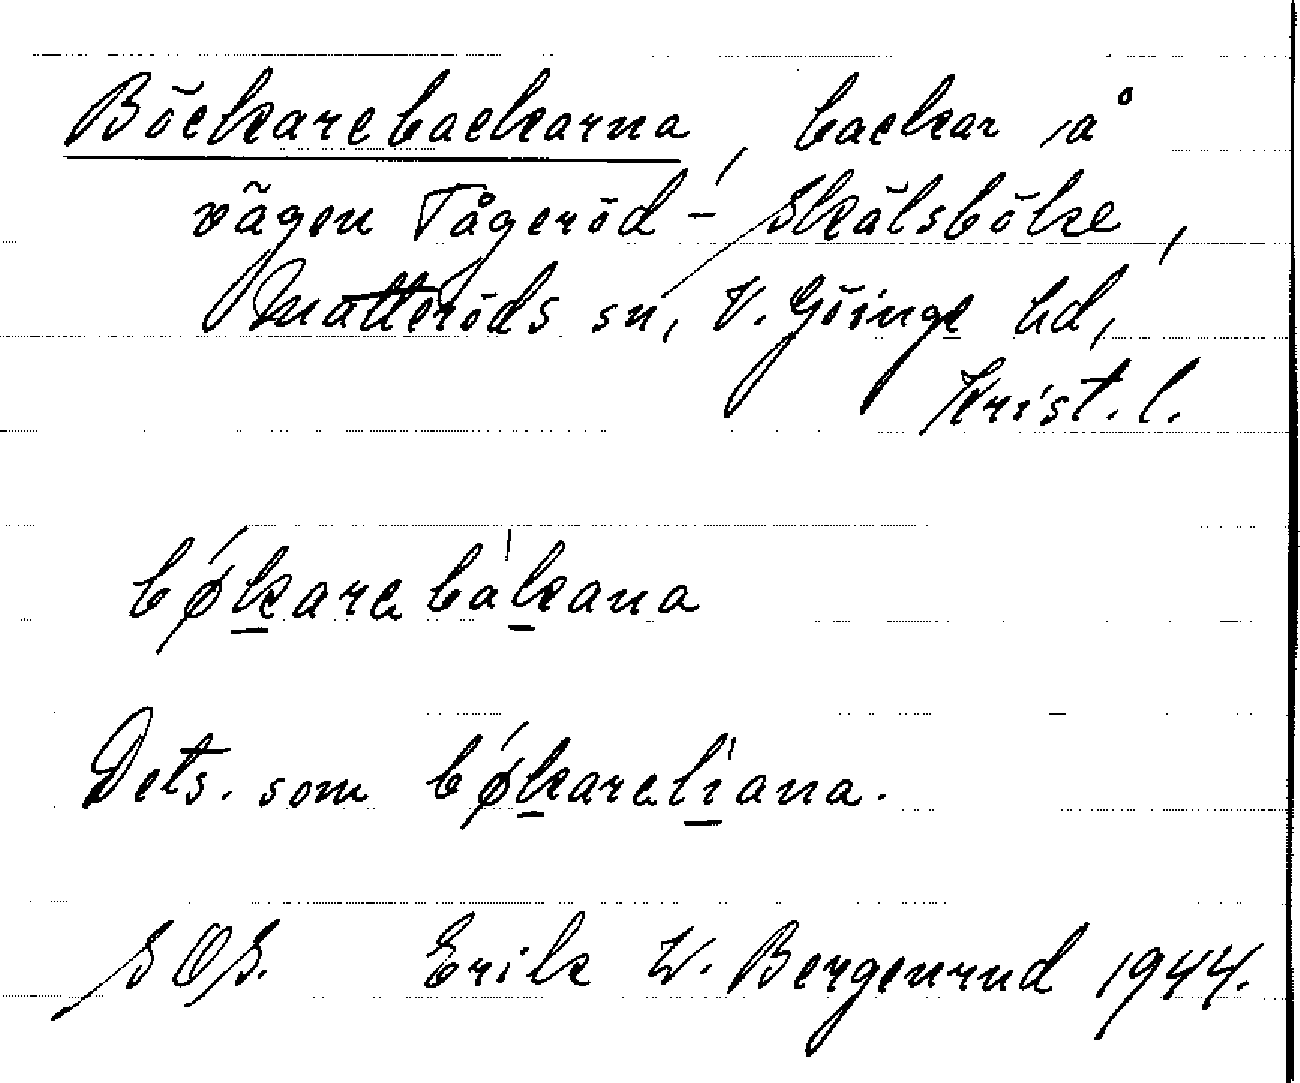 Böckarebackarna, backar å
vägen Tågeröd - Skälsböke,
Matteröds sn, V. Göinge hd,
Krist. l.
bǿkarebàkana
Dets. som bǿkareliana.
SOS. Erik W. Bergenrud 1944.